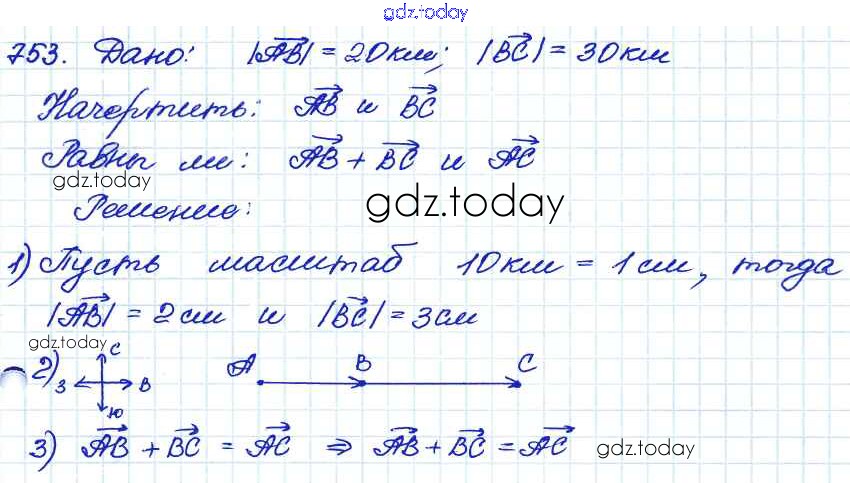 gdz.today
753. Дано: |AB| = 20км; |BC| = 30км
Начертить: AB и BC
Равны ли: AB + BC и AC
gdz.today
Решение:
gdz.today
1) Пусть масштаб 10км = 1см, тогда
|AB| = 2см и |BC| = 3см
gdz.today
2) С З В Ю A B C
3) AB + BC = AC ⇒ AB + BC = AC
gdz.today